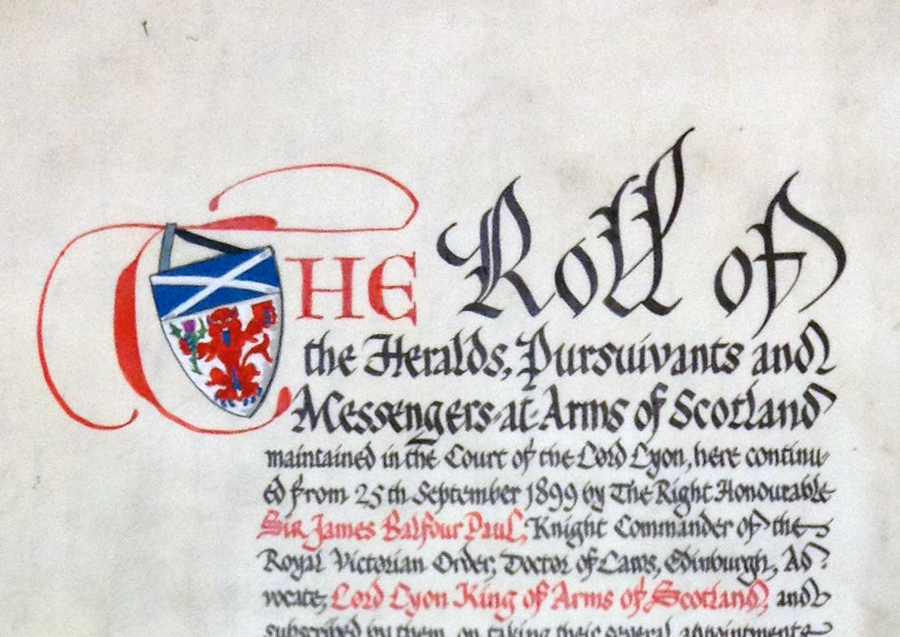 THE Roll of
the Heralds, Pursuivants and
Messengers-at-Arms of Scotland
maintained in the Court of the Lord Lyon, here continu-
ed from 25th September 1899 by The Right Honourable
Sir James Balfour Paul, Knight Commander of the
Royal Victorian Order, Doctor of Laws, Edinburgh, Ad-
vocate, Lord Lyon King of Arms of Scotland, and
subscribed by them, on taking their several appointments